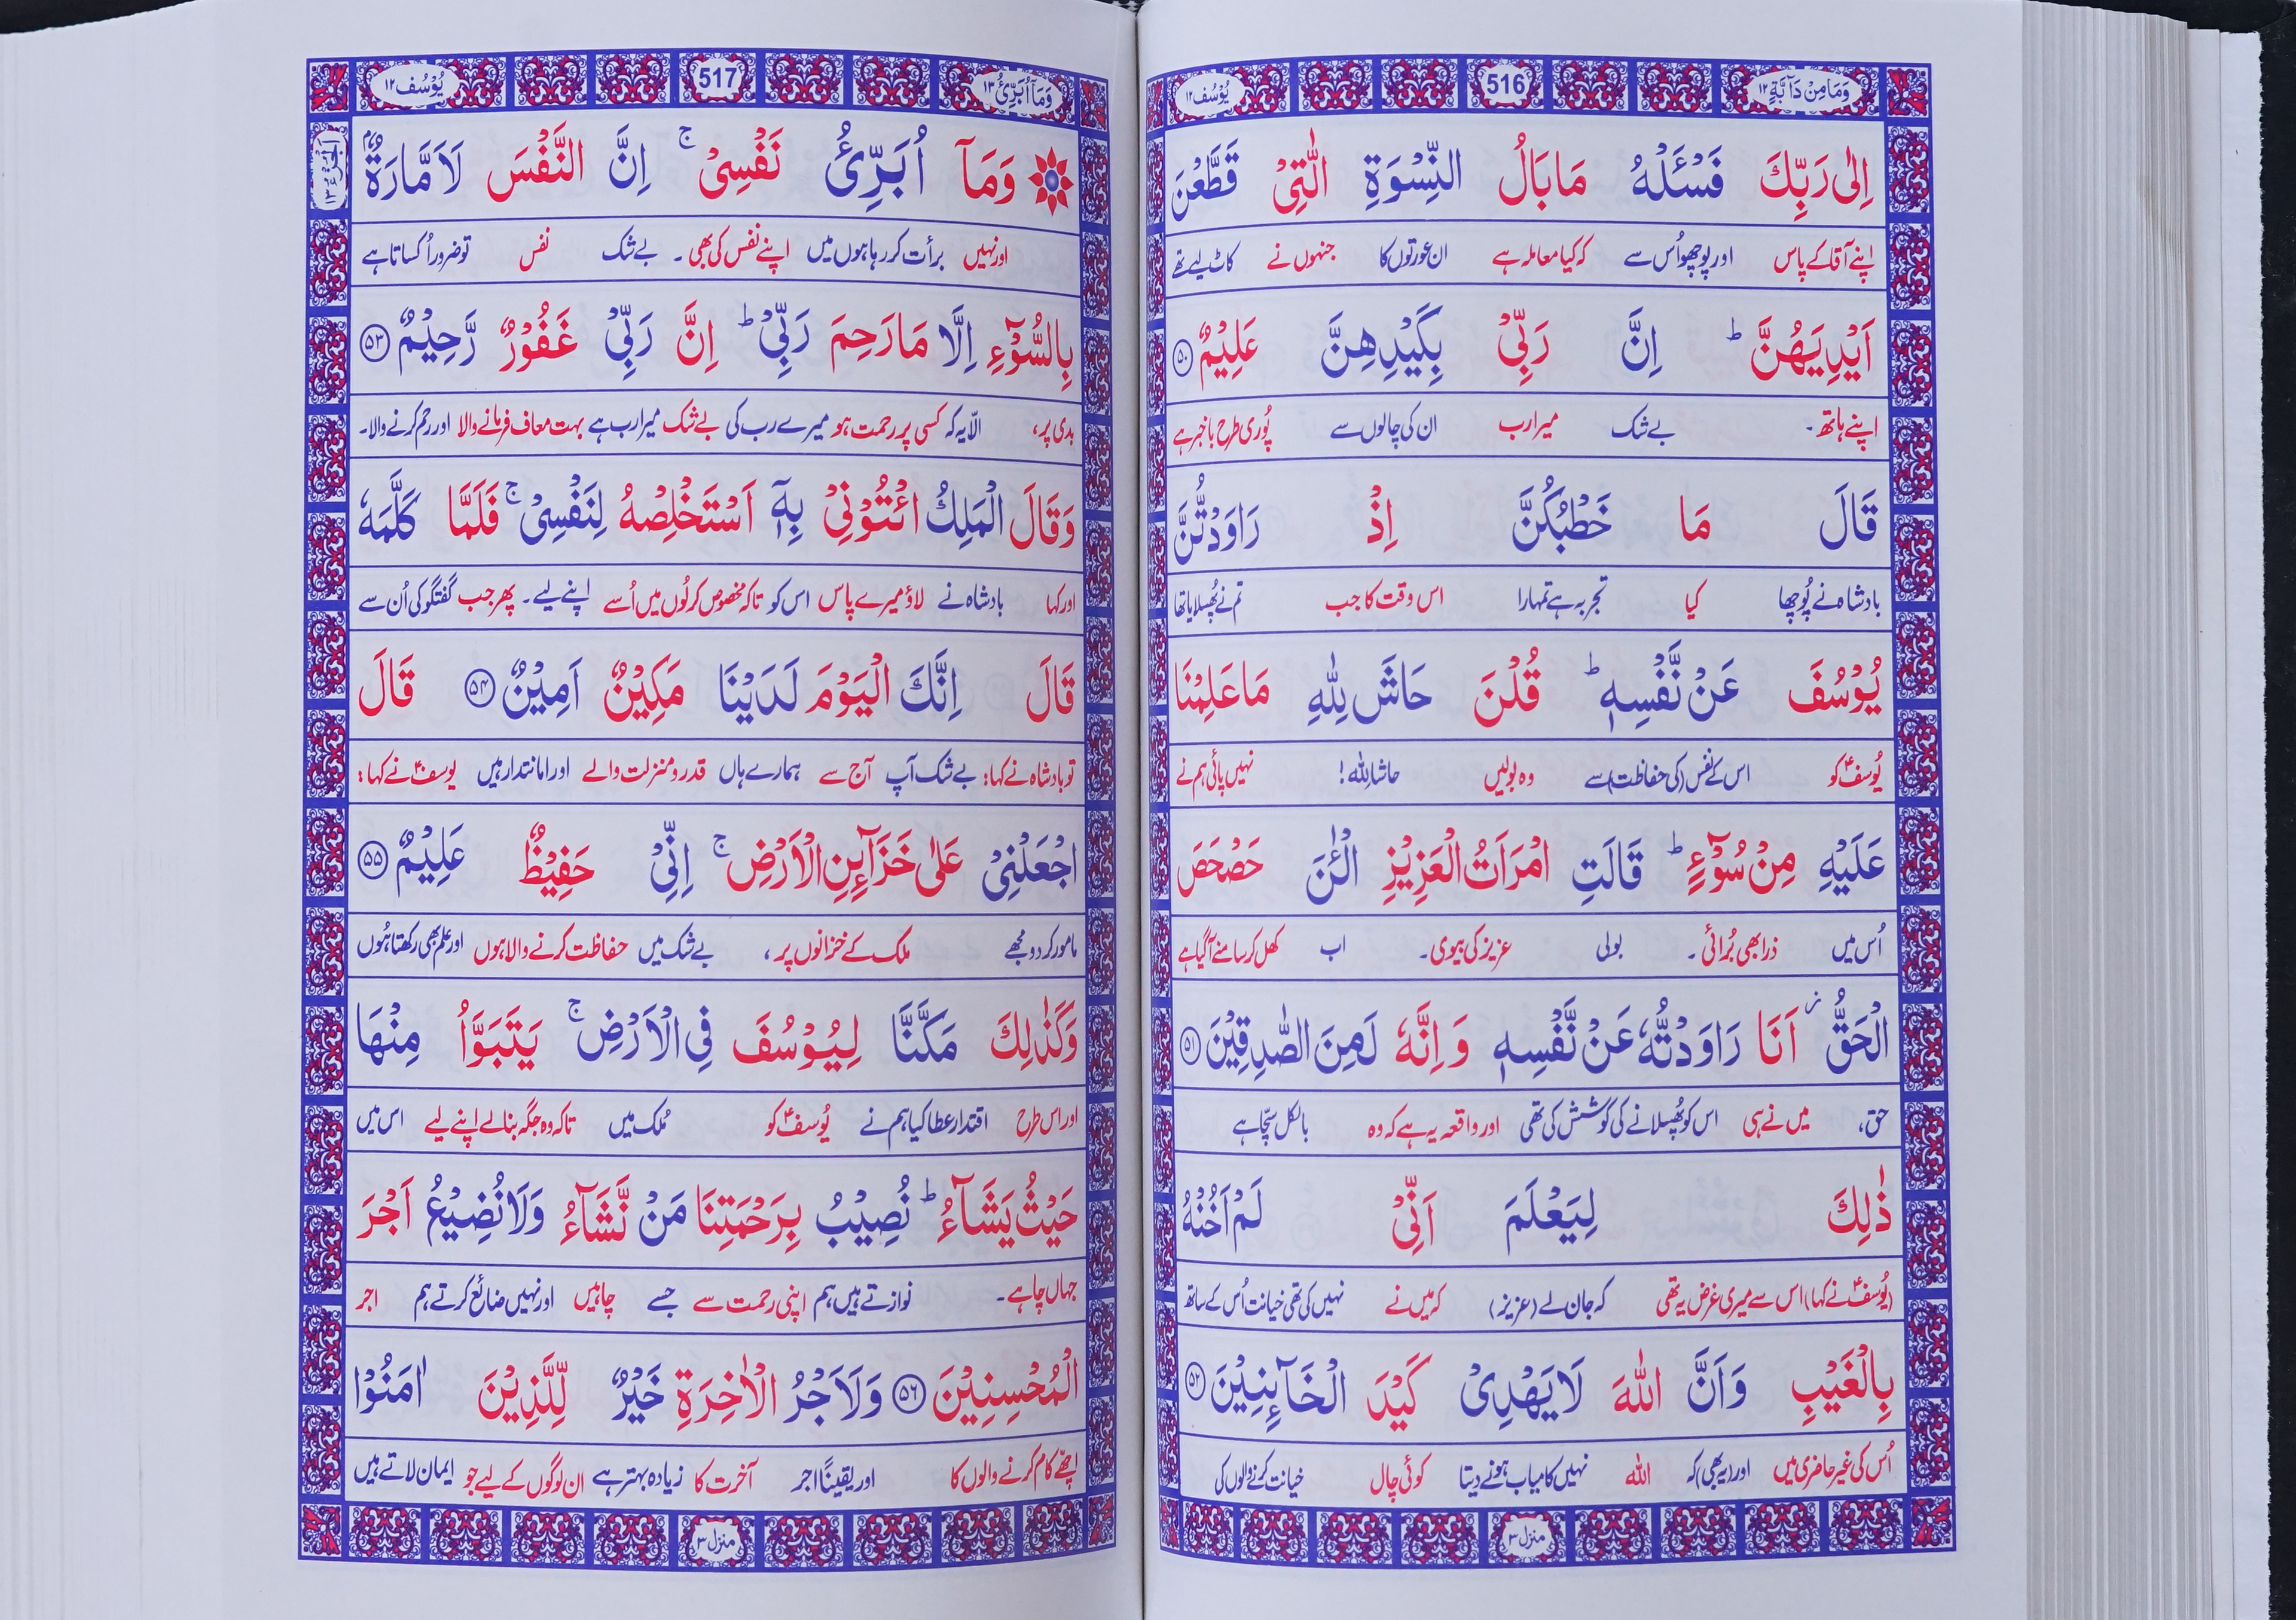 وَمَا مِنْ دَآبَّةٍ ١٢
516
يُوْسُف ١٢
اِلٰى رَبِّكَ فَسْـَٔلْهُ مَا بَالُ النِّسْوَةِ الّٰتِىْ قَطَّعْنَ
اپنے آقا کے پاس اور پوچھو اُس سے کہ کیا معاملہ ہے ان عورتوں کا جنہوں نے کاٹ لیے تھے
اَيْدِيَهُنَّ ؕ اِنَّ رَبِّىْ بِكَيْدِهِنَّ عَلِيْمٌ ﴿۵۰﴾
اپنے ہاتھ۔ بے شک میرا رب ان کی چالوں سے پُوری طرح باخبر ہے
قَالَ مَا خَطْبُكُنَّ اِذْ رَاوَدْتُّنَّ
بادشاہ نے پُوچھا کیا تجربہ ہے تمہارا اس وقت کا جب تم نے پُھسلایا تھا
يُوْسُفَ عَنْ نَّفْسِهٖ ؕ قُلْنَ حَاشَ لِلّٰهِ مَا عَلِمْنَا
یُوسفؑ کو اس کے نفس (کی حفاظت) سے وہ بولیں حاشا للہ! نہیں پائی ہم نے
عَلَيْهِ مِنْ سُوْٓءٍ ؕ قَالَتِ امْرَاَتُ الْعَزِيْزِ الْـٰٔنَ حَصْحَصَ
اُس میں ذرا بھی بُرائی۔ بولی عزیز کی بیوی۔ اب کھل کر سامنے آگیا ہے
الْحَقُّ ۫ اَنَا رَاوَدْتُّهٗ عَنْ نَّفْسِهٖ وَ اِنَّهٗ لَمِنَ الصّٰدِقِيْنَ ﴿۵۱﴾
حق، میں نے ہی اس کو پُھسلانے کی کوشش کی تھی اور واقعہ یہ ہے کہ وہ بالکل سچّا ہے
ذٰلِكَ لِيَعْلَمَ اَنِّىْ لَمْ اَخُنْهُ
(یُوسفؑ نے کہا) اس سے میری غرض یہ تھی کہ جان لے (عزیز) کہ میں نے نہیں کی تھی خیانت اُس کے ساتھ
بِالْغَيْبِ وَاَنَّ اللّٰهَ لَا يَهْدِىْ كَيْدَ الْخَآئِنِيْنَ ﴿۵۲﴾
اُس کی غیر حاضری میں اور (یہ بھی) کہ اللہ نہیں کامیاب ہونے دیتا کوئی چال خیانت کرنے والوں کی
منزل ۳
وَمَآ اُبَرِّئُ ١٣
517
يُوْسُف ١٢
وَمَآ اُبَرِّئُ نَفْسِىْ ۚ اِنَّ النَّفْسَ لَاَمَّارَةٌۢ
اور نہیں برأت کر رہا ہوں میں اپنے نفس کی بھی۔ بے شک نفس تو ضرور اُکساتا ہے
بِالسُّوْٓءِ اِلَّا مَا رَحِمَ رَبِّىْ ؕ اِنَّ رَبِّىْ غَفُوْرٌ رَّحِيْمٌ ﴿۵۳﴾
بدی پر، الّا یہ کہ کسی پر رحمت ہو میرے رب کی بے شک میرا رب ہے بہت معاف فرمانے والا اور رحم کرنے والا۔
وَقَالَ الْمَلِكُ ائْتُوْنِىْ بِهٖٓ اَسْتَخْلِصْهُ لِنَفْسِىْ ۚ فَلَمَّا كَلَّمَهٗ
اور کہا بادشاہ نے لاؤ میرے پاس اس کو تاکہ مخصوص کر لُوں میں اُسے اپنے لیے۔ پھر جب گفتگو کی اُن سے
قَالَ اِنَّكَ الْيَوْمَ لَدَيْنَا مَكِيْنٌ اَمِيْنٌ ﴿۵۴﴾ قَالَ
تو بادشاہ نے کہا: بے شک آپ آج سے ہمارے ہاں قدر و منزلت والے اور امانتدار ہیں یوسفؑ نے کہا:
اجْعَلْنِىْ عَلٰى خَزَآئِنِ الْاَرْضِ ۚ اِنِّىْ حَفِيْظٌ عَلِيْمٌ ﴿۵۵﴾
مامور کر دو مجھے ملک کے خزانوں پر، بے شک میں حفاظت کرنے والا ہوں اور علم بھی رکھتا ہُوں
وَكَذٰلِكَ مَكَّنَّا لِيُوْسُفَ فِى الْاَرْضِ ۚ يَتَبَوَّاُ مِنْهَا
اور اس طرح اقتدار عطا کیا ہم نے یُوسفؑ کو مُلک میں تاکہ وہ جگہ بنالے اپنے لیے اس میں
حَيْثُ يَشَآءُ ؕ نُصِيْبُ بِرَحْمَتِنَا مَنْ نَّشَآءُ وَلَا نُضِيْعُ اَجْرَ
جہاں چاہے۔ نوازتے ہیں ہم اپنی رحمت سے جسے چاہیں اور نہیں ضائع کرتے ہم اجر
الْمُحْسِنِيْنَ ﴿۵۶﴾ وَلَاَجْرُ الْاٰخِرَةِ خَيْرٌ لِّلَّذِيْنَ اٰمَنُوْا
اچھّے کام کرنے والوں کا اور یقیناً اجر آخرت کا زیادہ بہتر ہے ان لوگوں کے لیے جو ایمان لاتے ہیں
منزل ۳